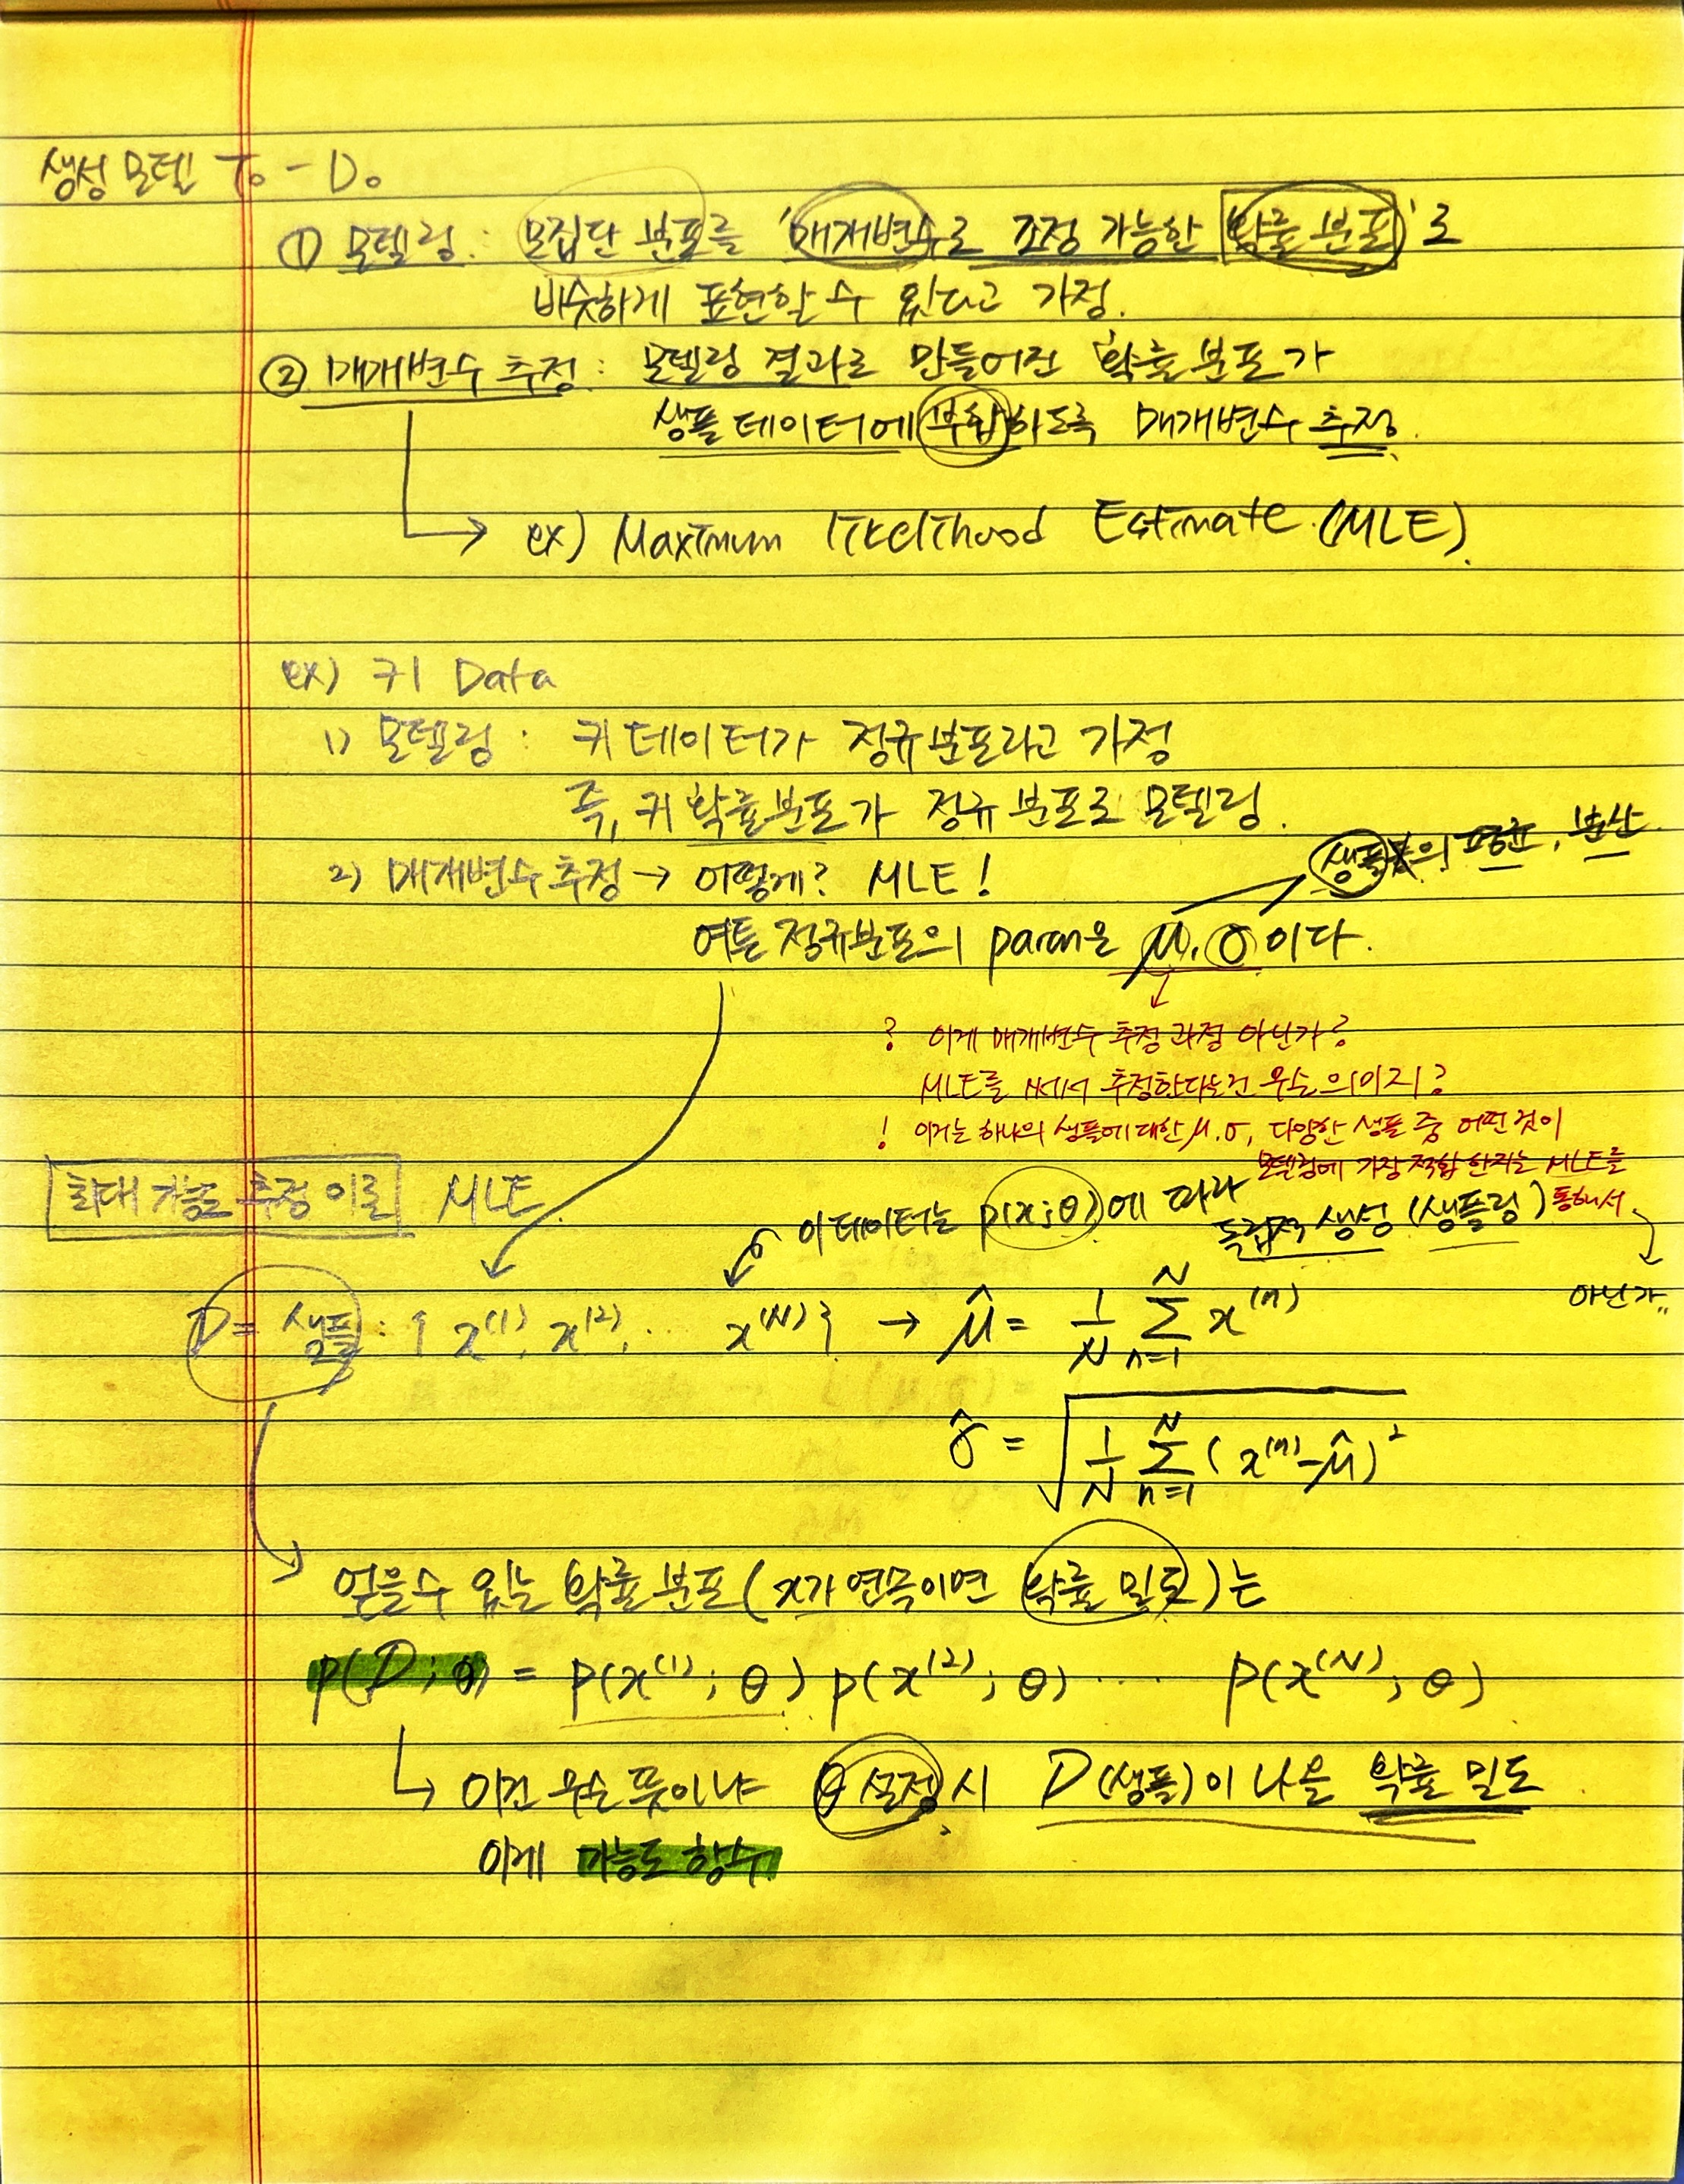 생성 모델 To-Do
① 모델링 : 모집단 분포를 '매개변수로 조정 가능한 확률 분포'로
비슷하게 표현할 수 있다고 가정.
② 매개변수 추정 : 모델링 결과로 만들어진 확률분포가
샘플 데이터에 부합하도록 매개변수 추정.
ex) Maximum likelihood Estimate (MLE).
ex) 키 Data
1) 모델링 : 키 데이터가 정규분포라고 가정
즉, 키 확률분포가 정규 분포로 모델링.
샘플의 평균, 분산
2) 매개변수 추정 → 어떻게? MLE!
여튼 정규분포의 param은 μ, σ이다.
? 이게 매개변수 추정 과정 아닌가?
MLE를 써서 추정한다는건 무슨 의미지?
! 이거는 하나의 샘플에 대한 μ, σ, 다양한 샘플 중 어떤 것이
모델링에 가장 적합한지는 MLE를
통해서
아닌가..
최대 가능도 추정 이론 MLE.
이 데이터는 p(x;θ)에 따라
독립적 생성 (샘플링)
D = 샘플 : { x⁽¹⁾, x⁽²⁾, ... x⁽ᴺ⁾} → μ̂ = 1/N Σ_{n=1}^{N} x⁽ⁿ⁾
σ̂ = √(1/N Σ_{n=1}^{N} (x⁽ⁿ⁾ - μ̂)²)
얻을수 있는 확률 분포 (x가 연속이면 확률 밀도)는
p(D;θ) = p(x⁽¹⁾;θ) p(x⁽²⁾;θ) ... p(x⁽ᴺ⁾;θ)
이건 무슨 뜻이냐 θ 설정시 D(샘플)이 나올 확률 밀도
이게 가능도 함수.